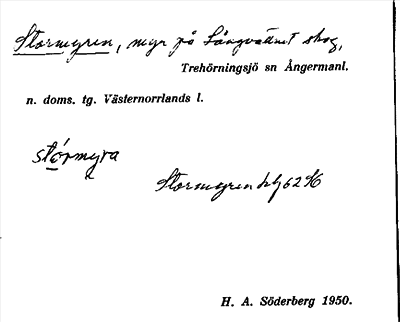 Stormyren, myr på Långvattnet skog,
Trehörningsjö sn Ångermanl.
n. doms. tg. Västernorrlands l.
stórmyra
Stormyren
H. A. Söderberg 1950.